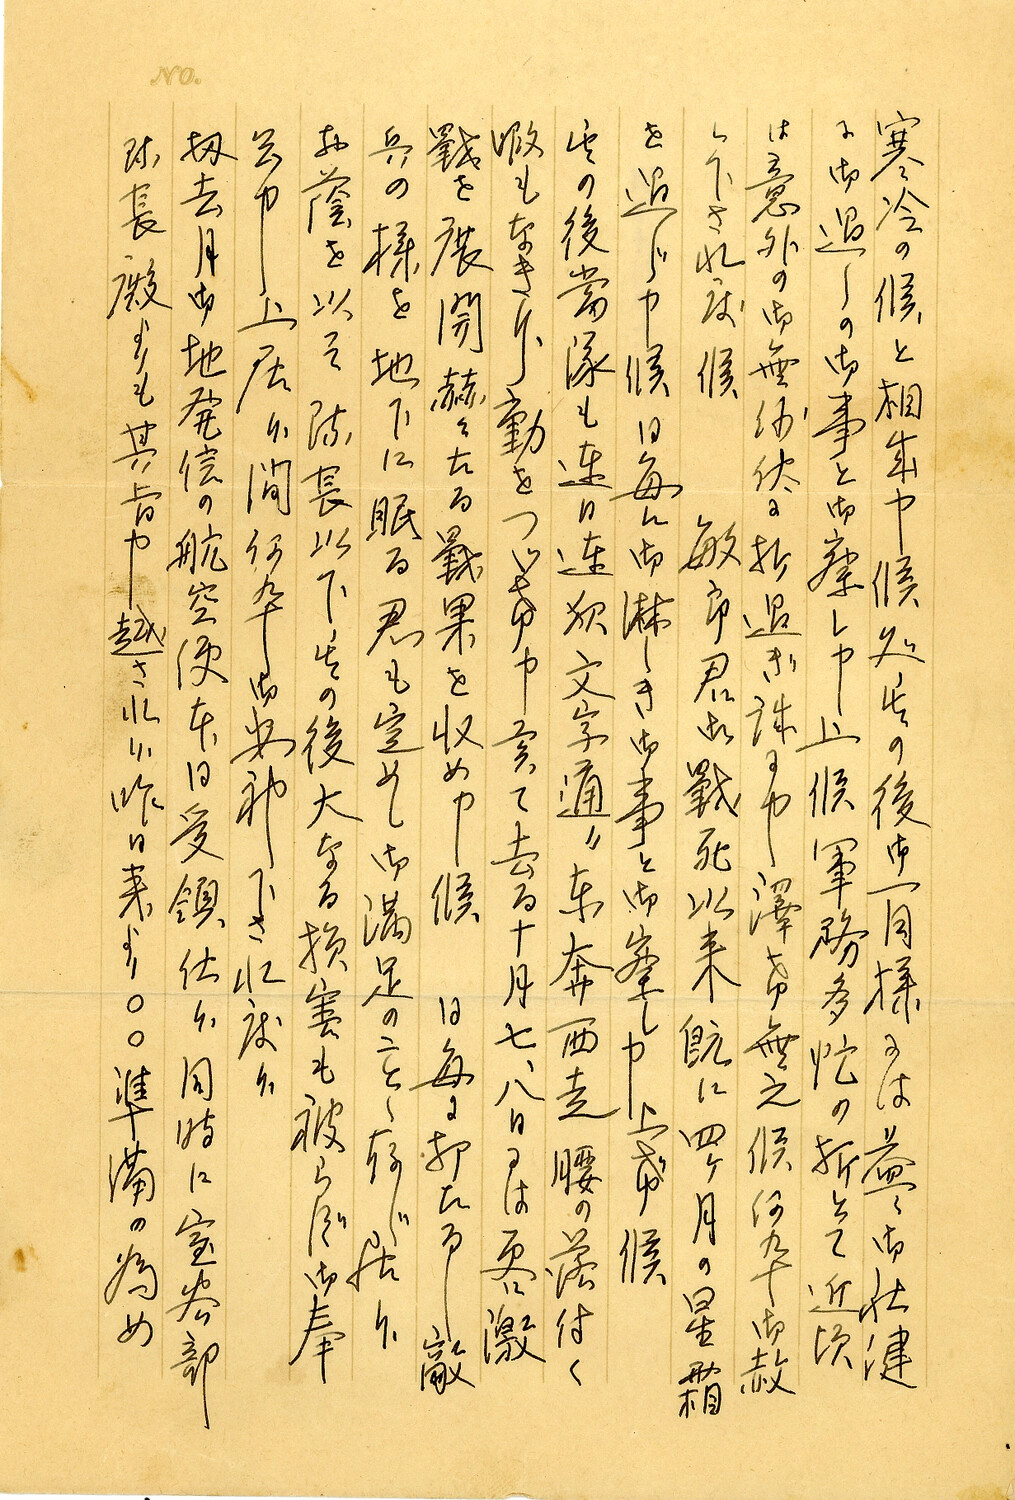 NO.
寒冷の候と相成申候処其の後御一同様には益々御壮健
に御過しの御事と御察し申上候軍務多忙の折とて近頃
は意外の御無沙汰に打過ぎ誠に申し譯無之候何卒御赦
し下され度候 敏郎君御戰死以来既に四ヶ月の星霜
を過じ申候日毎に御淋しき御事と御察し申上げ候
其の後當隊も連日連夜文字通り東奔西走腰の落付く
暇もなき行動をつゞけ申し去る十月七、八日には更に激
戰を展開赫々たる戰果を収め申候 日毎に打たるゝ敵
兵の様を地下に眠る君も定めし御満足の事と存じ居り
お蔭を以て隊長以下其の後大なる損害も被らず御奉
公申し上居り間何卒御安神下され度候
扨去月御地発信の航空便本日受領仕り同時に室谷部
隊長殿よりも其旨申し越され昨日来より〇〇準備の為め